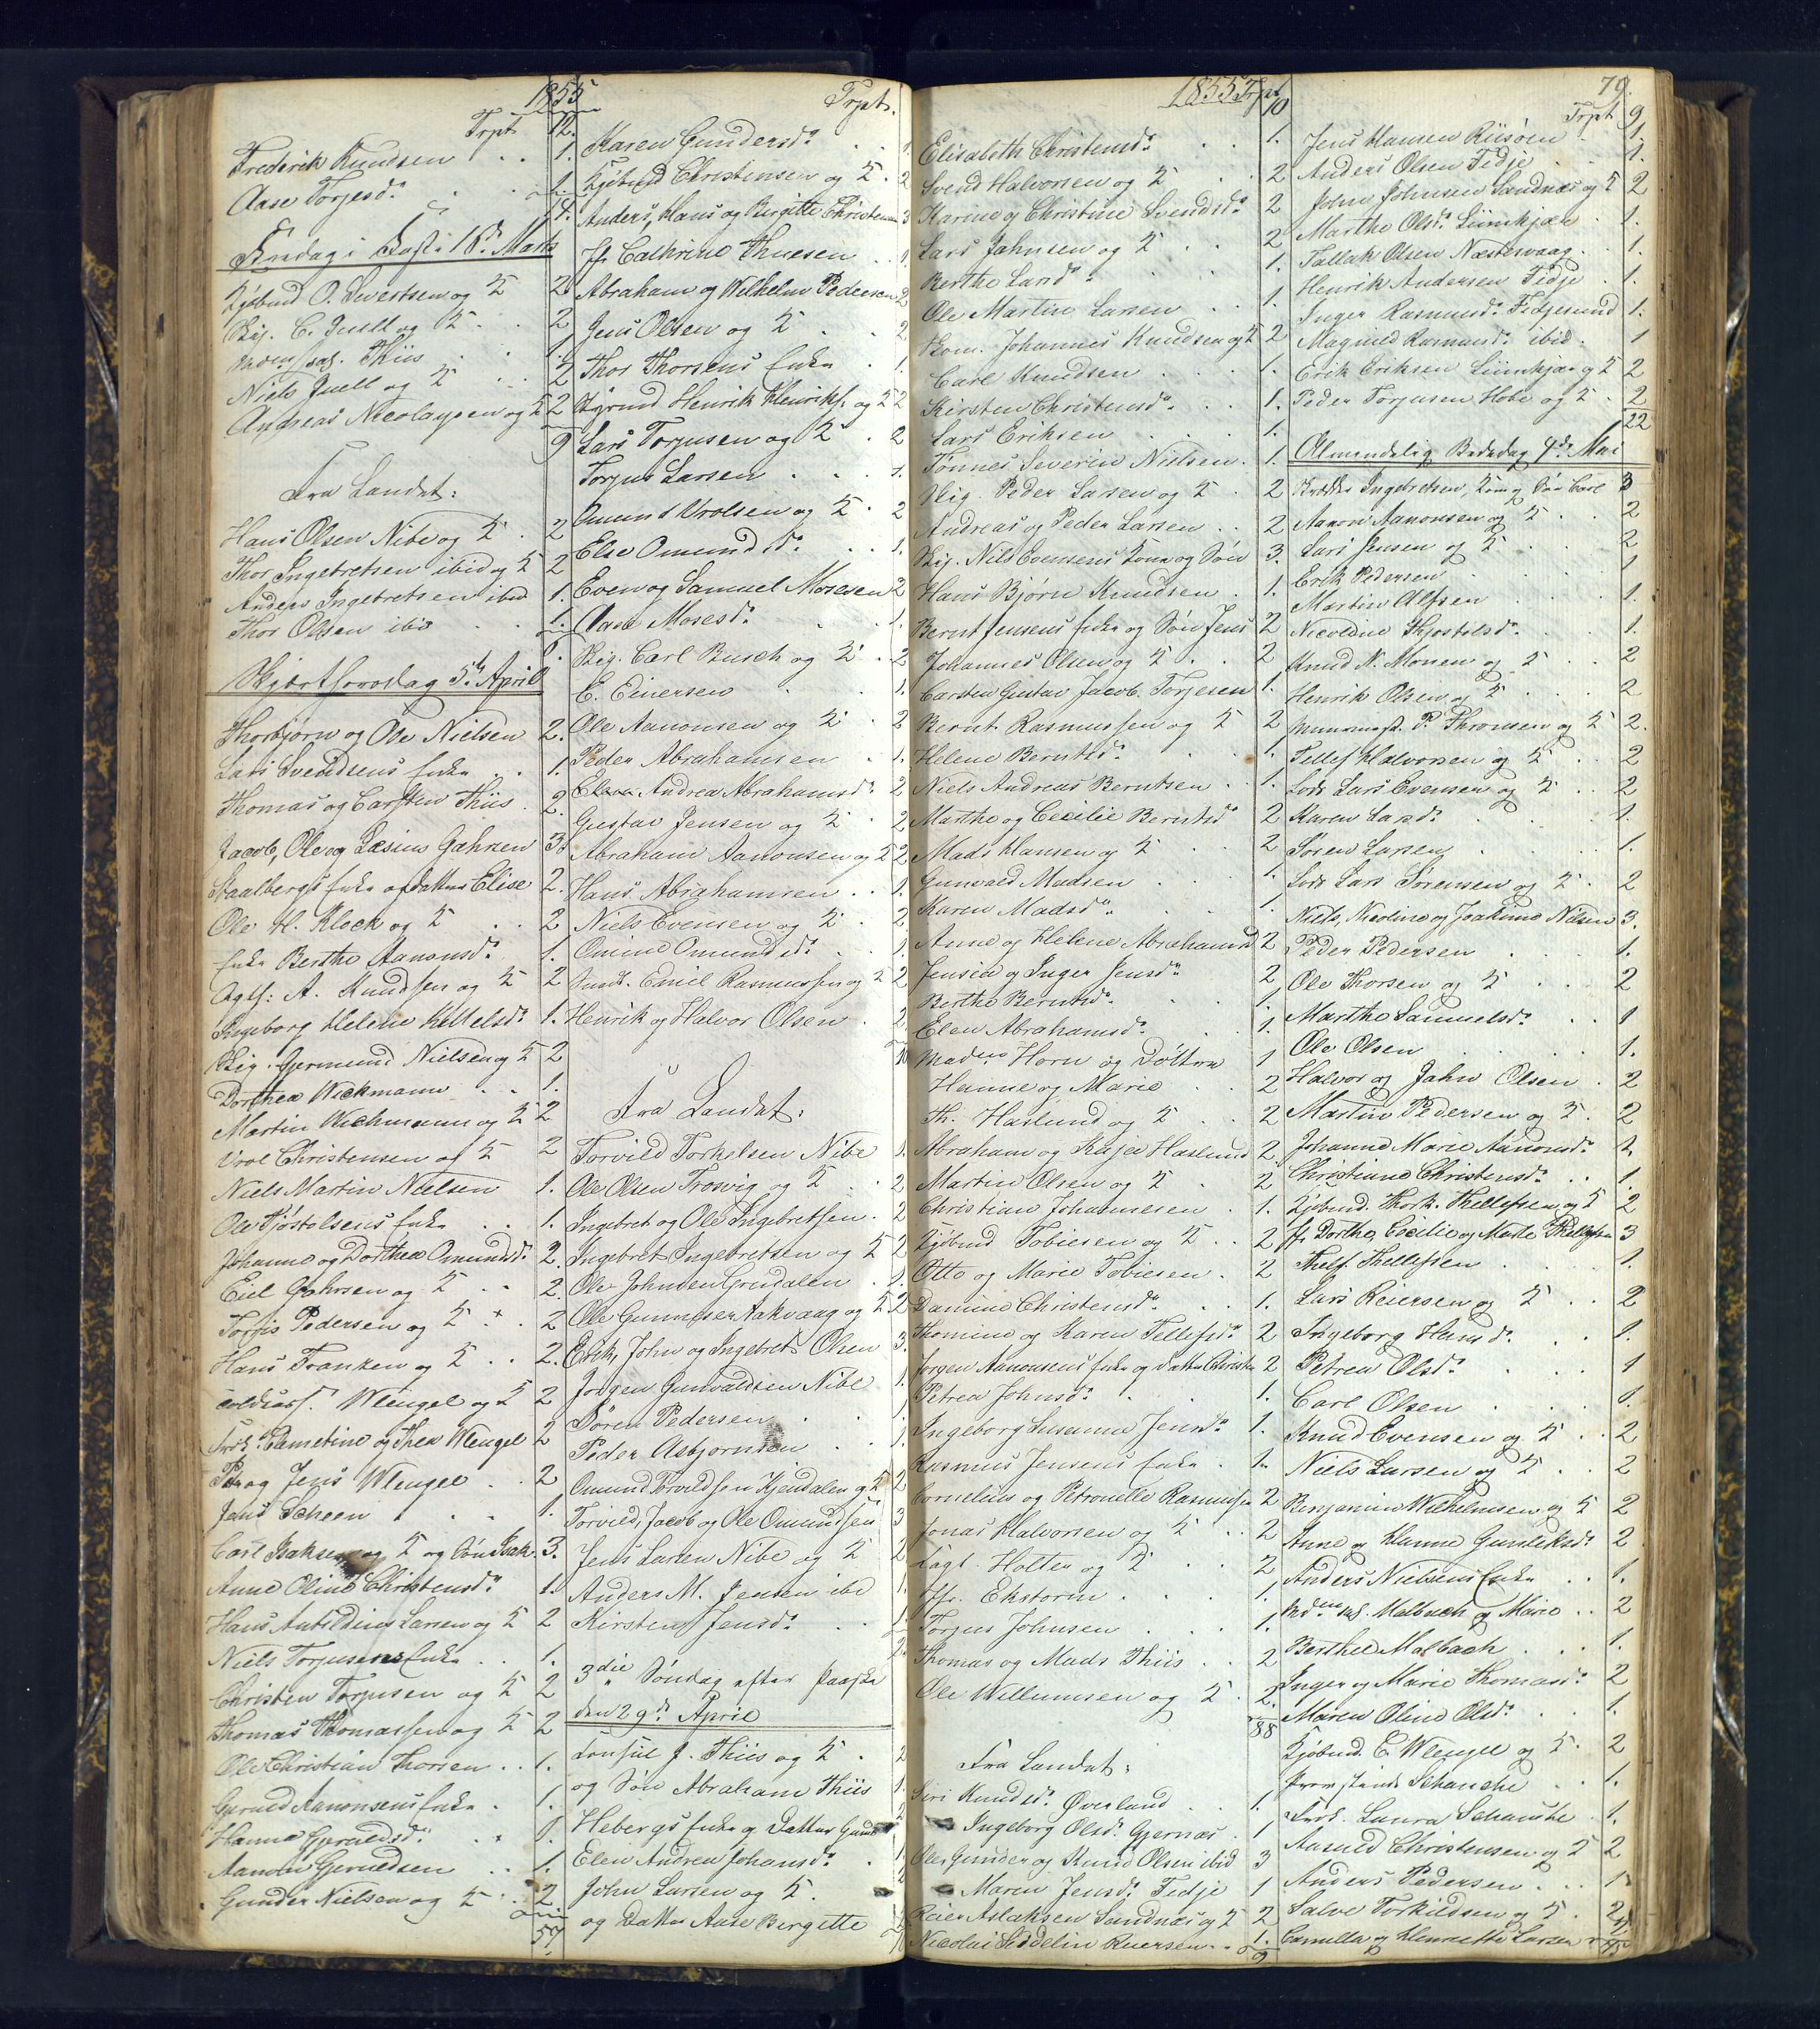 1855
Trpt. 12.
Frederik Knudsen 1.
Aase Torjesd. 1.
14.
Fredag i Faste 16d. Marts
Kjøbmd O. Sivertsen og K 2
Skij. C. Juell og K 2
Madm sal. Thiis 1.
Niels Juell og K 2
Andreas Nicolaysen og K 2
9
Fra Landet:
Hans Olsen Nibe og K 2
Thor Ingebretsen ibid og K 2
Anders Ingebretsen ibid 1.
Thor Olsen ibid 1.
Skjærthorsdag 5t. April
Thorbjørn og Ole Nielsen 2.
Lars Svendsens Enke 1.
Thomas og Carsten Thiis 2.
Jacob, Ole og Gahrsen 3.
Staalbergs Enke og datter Elise 2.
Ole H. Klock og K 2
Enke Berthe Aanonsd. 1.
Agts: A. Knudsen og K 2
Ingeborg Helene Kittelsd. 1.
Skij. Germund Nielsen og K 2
Dorthea Wichmann 1.
Martin Wichmann og K 2
Vrol Christensen og K 2
Niels Martin Nielsen 1.
Ole Kjøstolsens Enke 1.
Johanne og Dorthea Omundsd. 2.
Eiel Gahrsen og K 2.
Torjus Pedersen og K 2
Hans Franken og K 2.
Wleugel og K 2
Frøk. og Thea Wleugel 2
Per og Jens Wleugel 2
Jens Scheen 1.
Carl Isaksen og K og Søn Isak 3.
Anne Oline Christensd. 1.
Hans Larsen og K 2
Niels Torjusens Enke 1.
Christen Torjusen og K 2
Thomas Thomassen og K 2
Ole Christian Thorsen 1.
Gerued Aanonsens Enke 1.
Hanna Gerueldsd. 1.
Aanon Geruldsen 1.
Gunder Nielsen og K 2
57
Trpt.
Karen Gundersd. 1.
Kjøbmd Christensen og K 2
Anders, Hans og Birgitte Christensen 3
Jfr Cathrine Thuesen 1.
Abraham og Wilhelm Pedersen 2
Jens Olsen og K 2
Thor Thorsens Enke 1.
Styrmd Henrik Henriks. og K 2
Lars Torjusen og K 2
Torjus Larsen 1.
Omund Vrolsen og K 2
Else Omundsd. 1.
Even og Samuel Mosesen 2
Aase Mosesd. 1.
Skij. Carl Busch og K 2
E. Einersen 1.
Ole Aanonsen og K 2
Peder Abrahamsen 1.
Elen Andrea Abrahamsd. 2
Gustav Jensen og K 2
Abraham Aanonsen og K 2
Hans Abrahamsen 1.
Niels Evensen og K 2
Omine Omundsd. 1.
Emil Rasmussen og K 2
Henrik og Halvor Olsen 2
Fra Landet:
Torvild Torkelsen Nibe 1.
Ole Olsen Trosvig og K 2
Ingebret og Ole Ingebretsen 2
Ingebret Ingebretsen og K 2
Ole Johnsen Grindalen 1.
Ole Gunnersen Aakvaag og K 2
Erik, John og Ingebret Olsen 3.
Jørgen Gunvaldsen Nibe 1
Søren Pedersen 1.
Peder Asbjørnsen 1.
Omund Torvildsen Kjendalen og K 2
Torvild, Jacob og Ole Omundsen 3
Jens Larsen Nibe og K 2
Anders M. Jensen ibd 1.
Kirsten Jensd. 1.
3die Søndag efter Paaske
den 29d. April
Consul J. Thiis og K 2
og Søn Abraham Thiis 1.
Hebergs Enke og Datter 2
Elen Andrea Johansd. 1
John Larsen og K. 2
og Datter Aase Birgitte 1
1855
Trpt 10
Elisabeth Christensd. 1.
Svend Halvorsen og K 2
Karine og Christine Svendsd. 2
Lars Jahnsen og K 2
Berthe Larsd. 1.
Ole Martin Larsen 1.
Kom. Johannes Knudsen og K 2
Carl Knudsen 1.
Kirsten Christensd. 1.
Lars Eriksen 1.
Tønnes Severin Nielsen 1.
Skij. Peder Larsen og K 2
Andreas og Peder Larsen 2
Skij. Nils Evensens Kone og Søn 3.
Hans Bjørn Knudsen 1.
Bernt Jensens Enke og Søn Jens 2
Johannes Olsen og K 2
Carsten Gustav Jacob Torjesen 1.
Bernt Rasmussen og K 2
Helene Berntsd. 1.
Niels Andreas Berntsen 1.
Marthe og Cecilie Berntsd. 2
Mads Hansen og K 2
Gunvald Madsen 1.
Karen Madsd. 1.
Anne og Helene Abrahamsd. 2
Jensia og Inger Jensd. 2
Berthe Berntsd. 1.
Elen Abrahamsd. 1.
Madm Horn og Døttre 1
Hanne og Marie 2
Th. Haslund og K 2
Abraham og Kaja Haslund 2
Martin Olsen og K 2
Christian Johannesen 1.
Kjøbmd Tobiesen og K 2
Otto og Marie Tobiesen 2
Damine Christensd. 1.
Thomine og Karen Tellefsd. 2
Jørgen Aanonsens Enke og datter Christine 2
Petrea Johnsd. 1.
Ingeborg Susanna Jensd. 1.
Rasmus Jensens Enke 1.
Cornelius og Petronelle Rasmussen 2
Jonas Halvorsen og K 2
Holter og K 2
Jfr. Ekstorm 1.
Torjus Johnsen 1.
Thomas og Mads Thiis 2
Ole Willumsen og K 2.
88
Fra Landet:
Siri Knudsd. Øverland 1.
Ingeborg Olsd. Gjernæs 1
Ole, Gunder og Knud Olsen ibid 3
Maren Jensd. Tedje 1
Reier Aslaksen Sandnæs og K 2
Nicolai Reiersen 1.
9
79.
Trpt 9
Jens Hansen Riisøen 1.
Anders Olsen Fidje 1.
John Johnsen Sandnæs og K 2
Marthe Olsd. Liimkjær 1.
Tallak Olsen Næstesvaag 1.
Henrik Andersen Fidje 1.
Inger Rasmusd. Fidjesund 1.
Magnild Rasmusd. ibid. 1
Erik Eriksen Liimkjær og K 2
Peder Torjusen Hobe og K 2
22
Almindelig Bededag 4d. Mai
Ingebretsen, Kone og Søn Carl 3
Aanon Aanonsen og K 2
Lars Jensen og K 2
Erik Pedersen 1
Martin Alfsen 1.
Nicoline Kjøstolsd. 1.
Knud N. Monen og K 2
Henrik Olsen og K 2
P. Thronsen og K 2.
Tellef Halvorsen og K 2
Lods Lars Evensen og K 2
Karen Larsd. 1.
Søren Larsen 1.
Lods Lars Sørensen og K 2
Niels, Nicoline og Joakime Nilsen 3.
Peder Pedersen 1.
Ole Thorsen og K 2
Marthe Samuelsd. 1
Ole Olsen 1.
Halvor og Jahn Olsen 2
Martin Pedersen og K 2
Johanne Marie Aanonsd. 1
Christiane Christensd. 1.
Kjøbmd. Thork. Thellefsen og K 2
Jfr Dorthe, Cecilie og Marte Thellefsen 3
Thelf Thellefsen 1.
Lars Reiersen og K 2
Ingeborg Hansd. 1.
Petrea Olsd. 1
Carl Olsen 1.
Knud Evensen og K 2
Niels Larsen og K 2
Benjamin Wilhelmsen og K 2
Anne og Hanne Gunleksd. 2
Anders Nielsens Enke 1.
Mdm sal. Malbach og Marie 2
Berthe Malbach 1.
Inger og Marie Thomasd. 2
Maren Oline Olsd. 1.
Kjøbmd. E. Wleugel og K 2
Schanche 1.
Frøk. Laura Schanche 1.
Aanund Christensen og K 2
Anders Pedersen 1
Salve Torkildsen og K 2
Camilla og Henriette Larsen